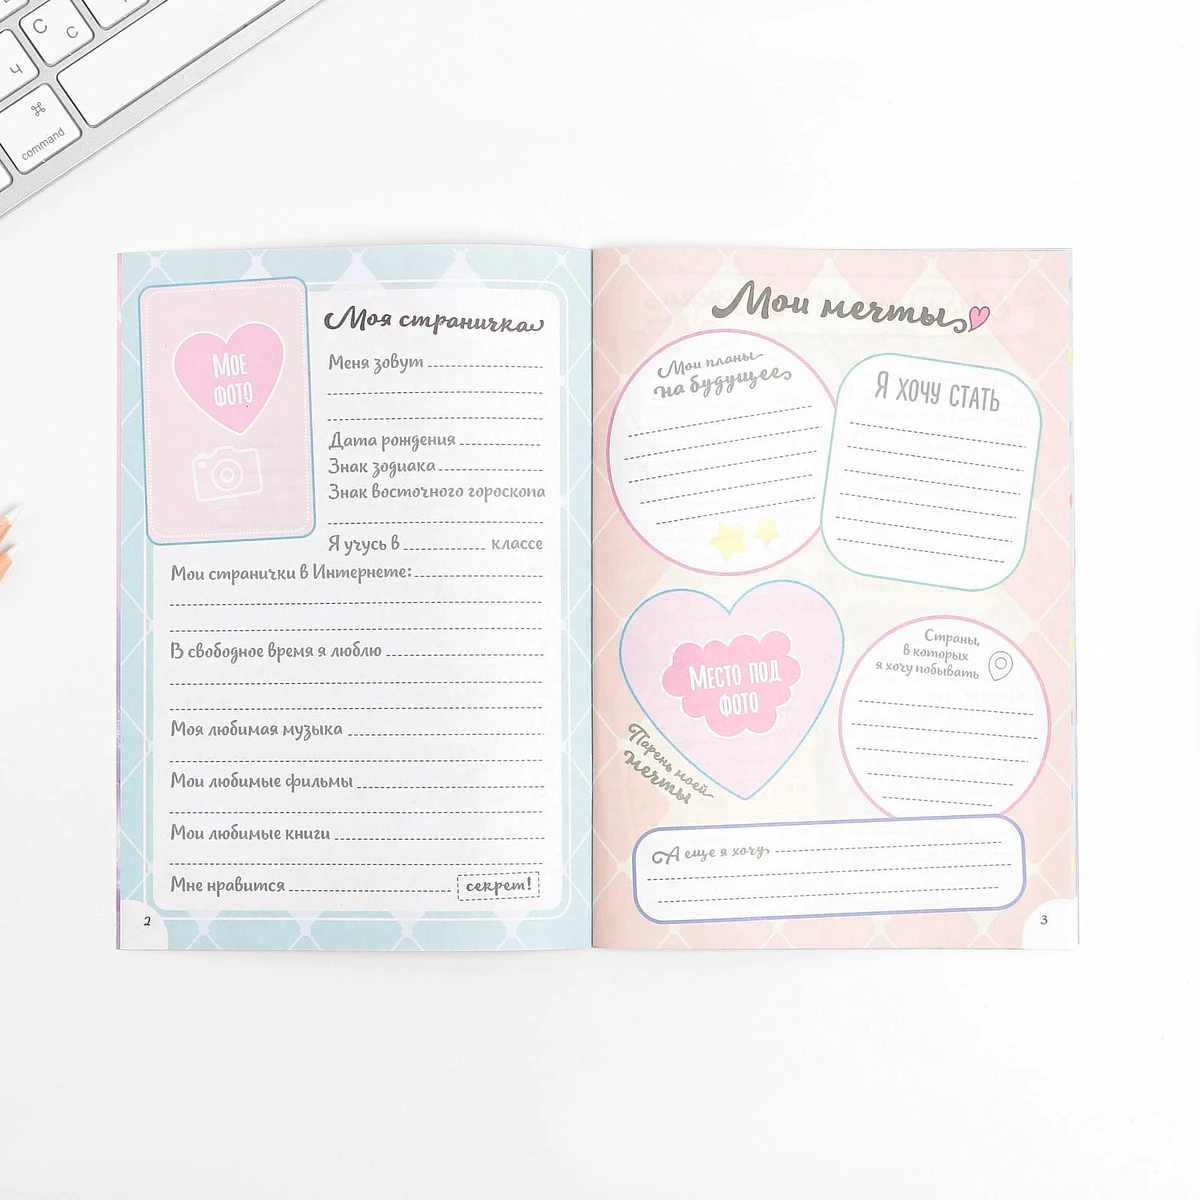 С
с
Ч
⌘
command
Мое
фото
Моя страничка
Меня зовут
Дата рождения
Знак зодиака
Знак восточного гороскопа
Я учусь в классе
Мои странички в Интернете:
В свободное время я люблю
Моя любимая музыка
Мои любимые фильмы
Мои любимые книги
Мне нравится секрет!
2
Мои мечты
Мои планы
на будущее
Я хочу стать
Место под
фото
Парень моей
мечты
Страны,
в которых
я хочу побывать
А еще я хочу
3